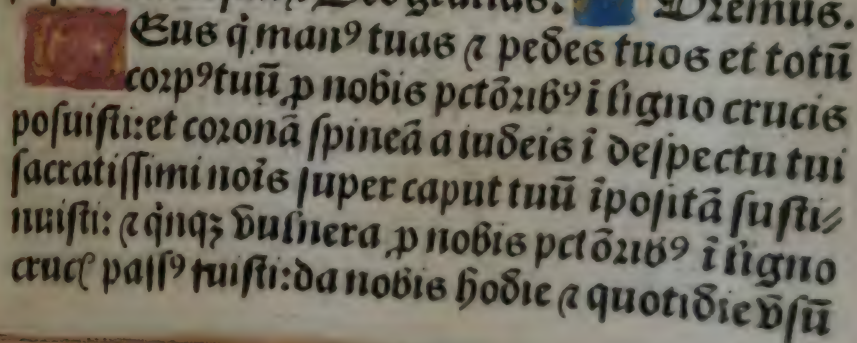 gratias. Oremus.
DEus q̇ manꝰ tuas ⁊ pedes tuos et totū
corpꝰ tuū ꝓ nobis pctōribꝰ ī ligno crucis
posuisti: et coronā spineā a iudeis ī despectu tui
sacratissimi noīs super caput tuū īpositā susti⸗
nuisti: ⁊ q̇nqꝫ v̄ulnera ꝓ nobis pctōribꝰ ī ligno
crucꝭ passꝰ fuisti: da nobis hodie ⁊ quotidie v̄sū